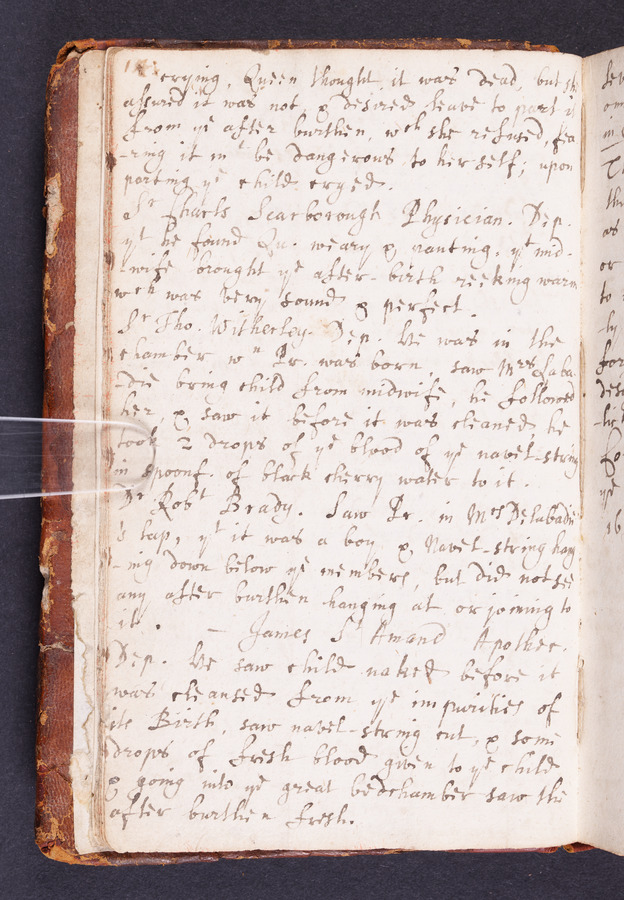 crying, Queen thought it was dead, but sh
assured it was not, & desired leave to part it
from ye after burthen, wch she refused, fea
-ring it mt be dangerous to her self; upon
parting ye child cryed.
Sr Charls Scarborough Physician. Dep.
yt he found Qu. weary & panting, ye mid-
-wife brought ye after-birth reeking warm
wch was very sound & perfect.
Sr Tho. Witherley Dep. He was in the
chamber wn Pr. was born, saw Mrs Laba-
-die bring child from midwife, he followed
her, & saw it before it was cleaned he
took 2 drops of ye blood of ye navel-string
in spoonf. of black cherry water to it.
Dr Robt Brady. Saw Pr. in Mrs Delabadie
's lap, yt it was a boy & Navel-string hang
-ing down below ye members, but did not see
any after burthen hanging at, or joining to
it. — James St Amand Apothec.
Dep. He saw child naked before it
was cleansed from ye impurities of
its Birth, saw navel-string cut, & some
drops of fresh blood given to ye child
& going into ye great bedchamber saw the
after burthen fresh.